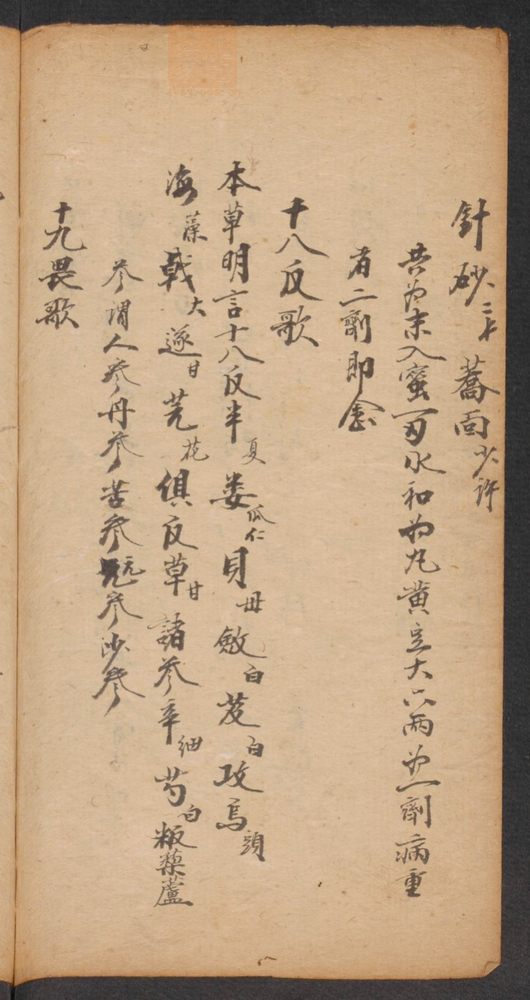 針砂二十 蕎面少許
共为末入蜜一百水和为丸黄豆大六両为一劑病重
者二劑即愈
十八反歌
本草明言十八反半夏蒌瓜仁貝母斂白芨白攻烏頭
海藻戟大遂甘芫花俱反草甘諸参辛細芍白叛藜蘆
参謂人参丹参苦参元参沙参
十九畏歌